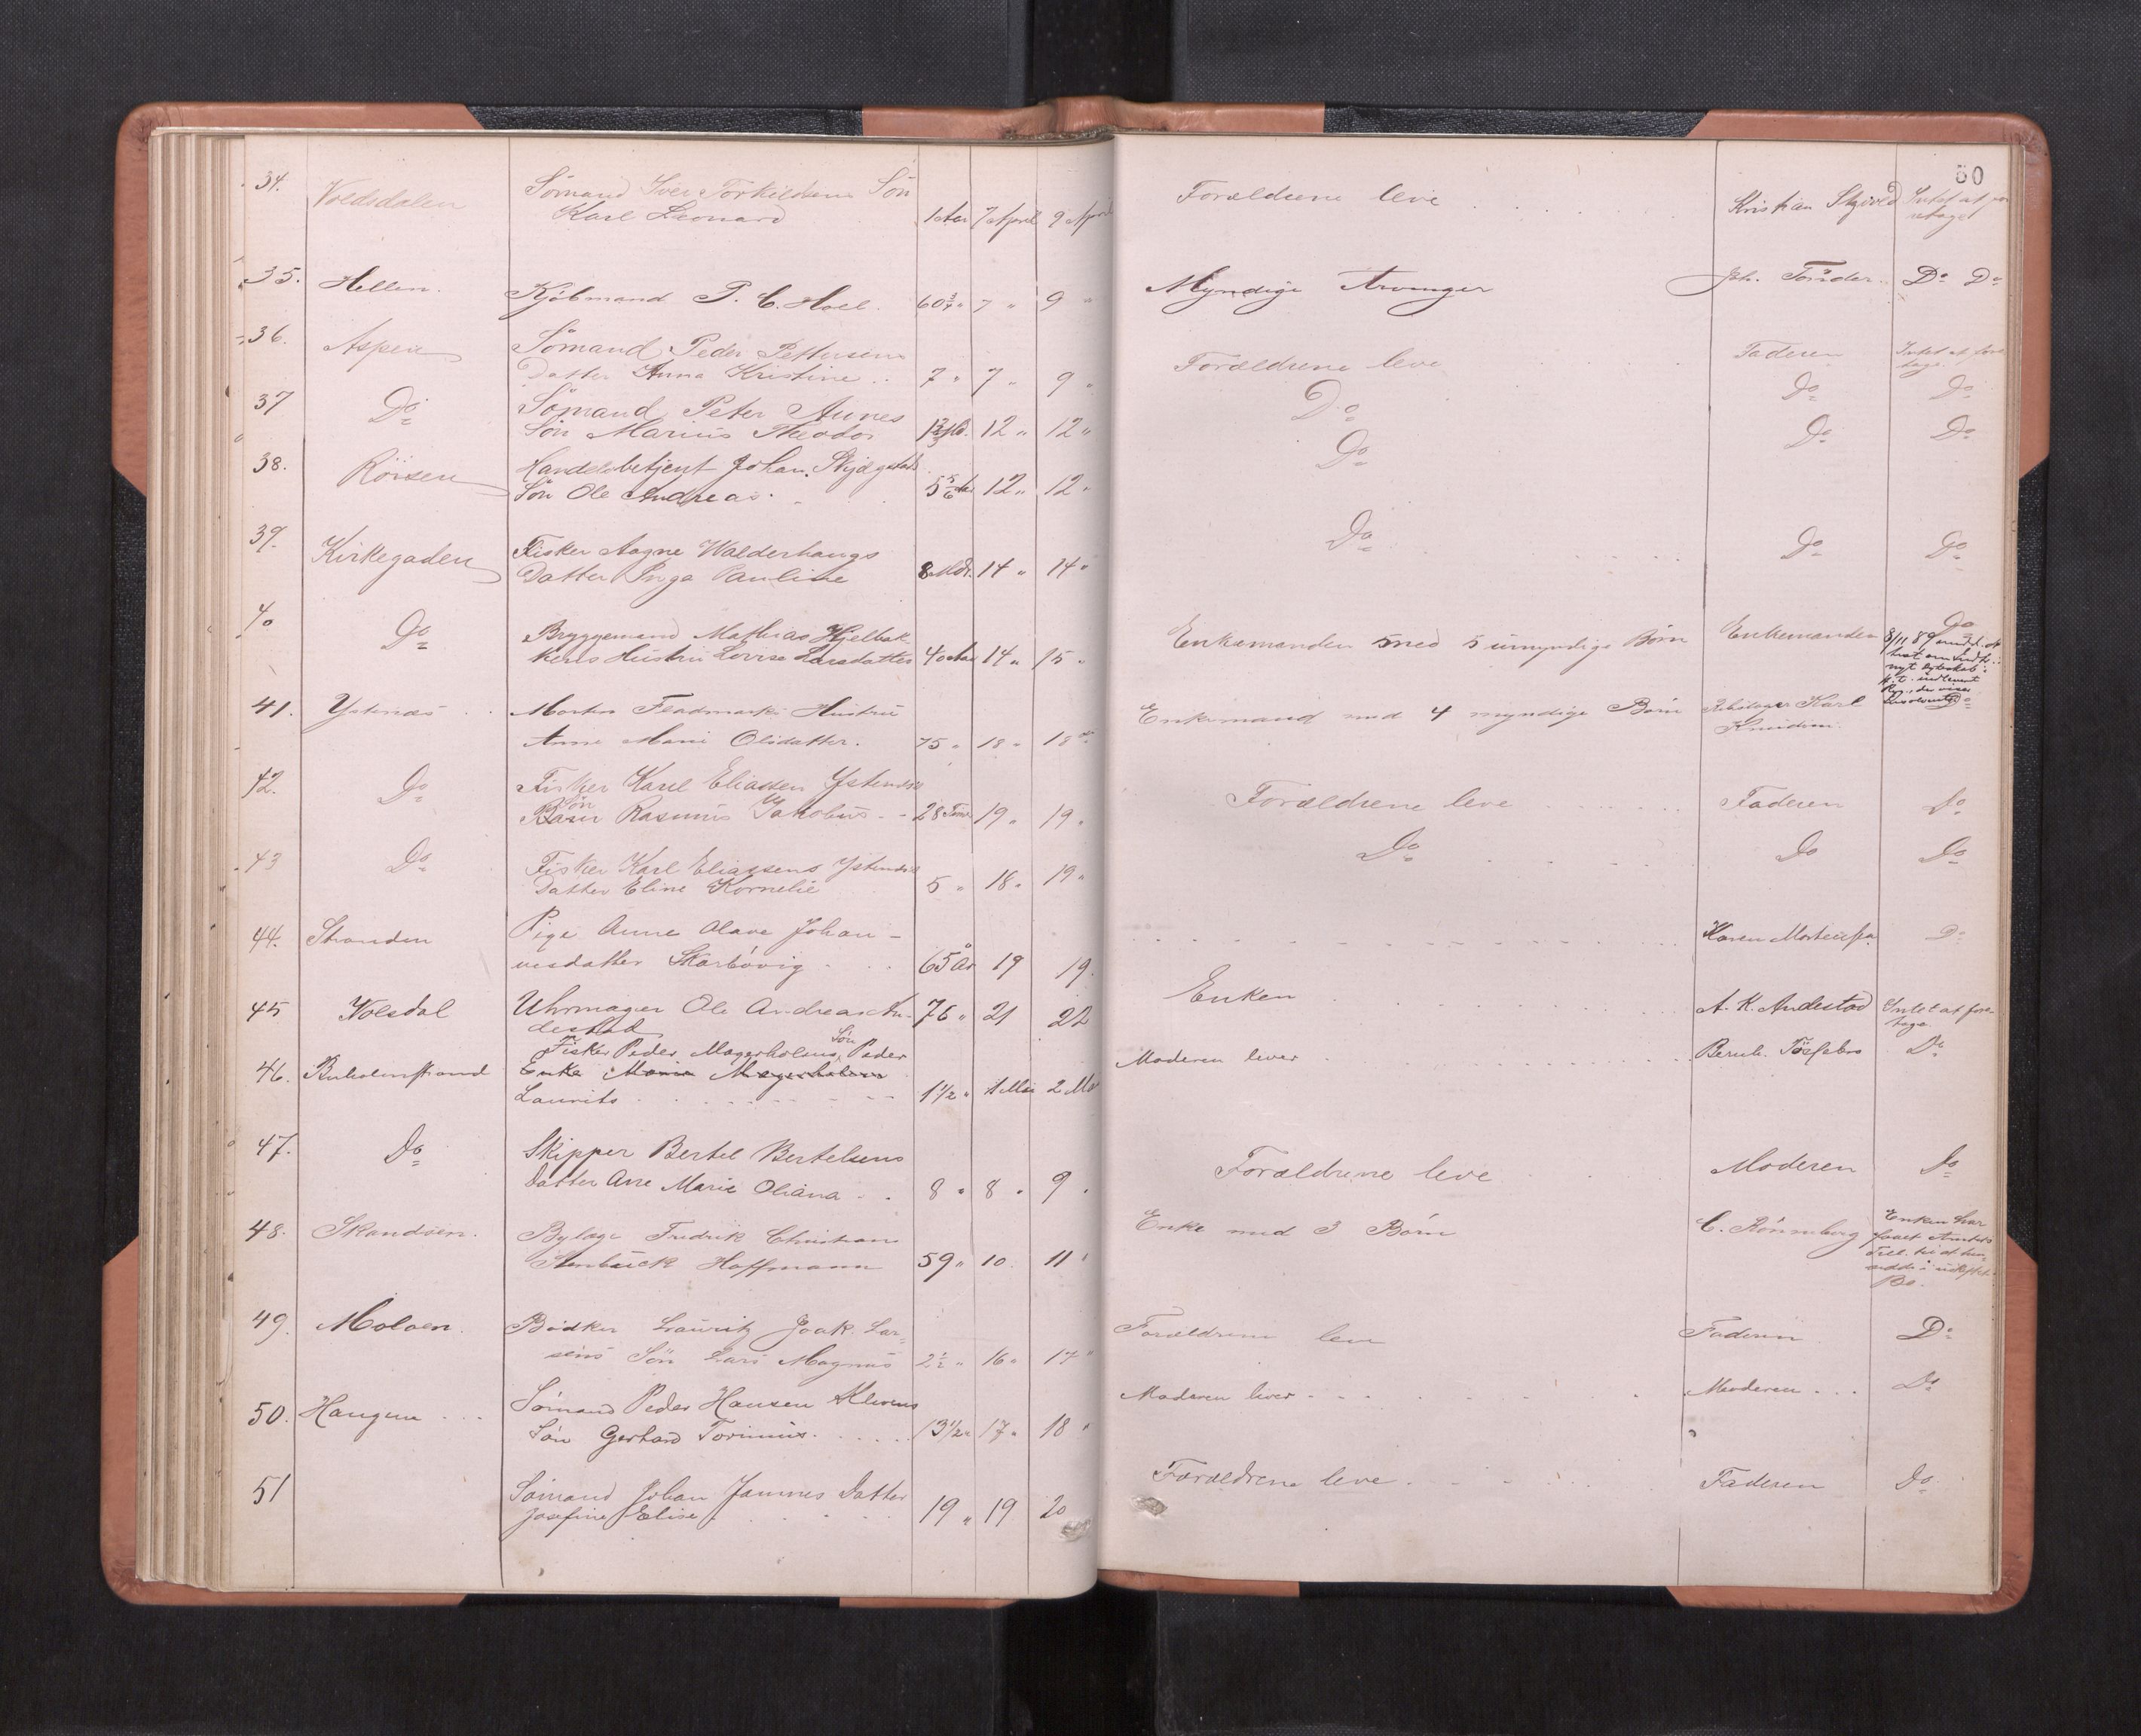 80
34. Voldsdalen Sömand Iver Torkildsens Sön
Karl Leonard 1 Aar 7 April 9 April Forældrene leve Kristian Skjvold Intet at fore-
retage
35. Hellen. Kjöbmand P. C. Hoel. 60 3/4 " 7 " 9 " Myndige Arvinger Joh. Tönder. Do Do
36. Aspen Sömand Peder Pettersens
Datter Anna Kristine .. 7 " 7 " 9 " Forældrene leve Faderen Intet at fore-
tage.
37 Do Sömand Peter Aunes
Sön Marius Theodor Md. 12 " 12 " Do Do Do
38. Rörsen Handelsbetjent Johan
Sön Ole Andreas. 5 5/6 Aar 12 " 12 " Do Do Do
39. Kirkegaden Fisker Aagne Walderhaugs
Datter Inga Pauline 8 Mdr. 14 " 14 " Do Do Do
40 Do Bryggemand Mathias Hjelbak-
kens Hustru Lovise Larsdatter 40 Aar 14 " 15 " Enkemanden med 5 umyndige Børn Enkemanden Do
8/11 89
41. Ystenæs Morten Fladmarks Hustru
Anne Marie Olsdatter. 75 " 18 " 18 " Enkemand med 4 myndige Børn Karl
Knudsen. Do
42. Do Fisker Karl Eliassen Ystenæs
Sön Rasmus Jakobus - - 28 Timer 19 " 19 " Forældrene leve Faderen Do
43 Do Fisker Karl Eliassens Ystenæs
Datter Eline Kornelie 5 " 18 " 19 " Do Do Do
44. Stranden Pige Anne Olave Johan-
nesdatter Skarbövig 65 Aar 19 19. Karen Do
45 Volsdal Uhrmager Ole Andreas An-
destad 76 " 21 22 Enken A. K. Andestad Intet at fore-
tage.
46. Buholmstrand Fisker Peder Magerholms Sön Peder
Enke Magerholm
Laurits 1 1/2 " 1 Mai 2 Mai Moderen lever Do
47. Do Skipper Bertel Bertelsens
Datter Ane Marie Oliana 8 " 8 " 9 " Forældrene leve Moderen Do
48. Skandsen. Bylæge Fredrik Christian
Stenbuck Hoffmann 59 " 10. 11 " Enke med 3 Børn C. Rönneberg Enken har
faaet Amtets
Bo.
49. Moloen. Bödker Lauritz Joak. Lar-
sens Sön Lars Magnus 2 1/2 " 16 " 17 " Forældrene leve Faderen Do
50. Haugen Sömand Peder Hansen Klevens
Sön Gerhard Torinius. 13 1/2 " 17 " 18 " Moderen lever Moderen Do
51 Sömand Johan Jannes Datter
Josefine Elise 19 " 19 20 Forældrene leve Faderen Do